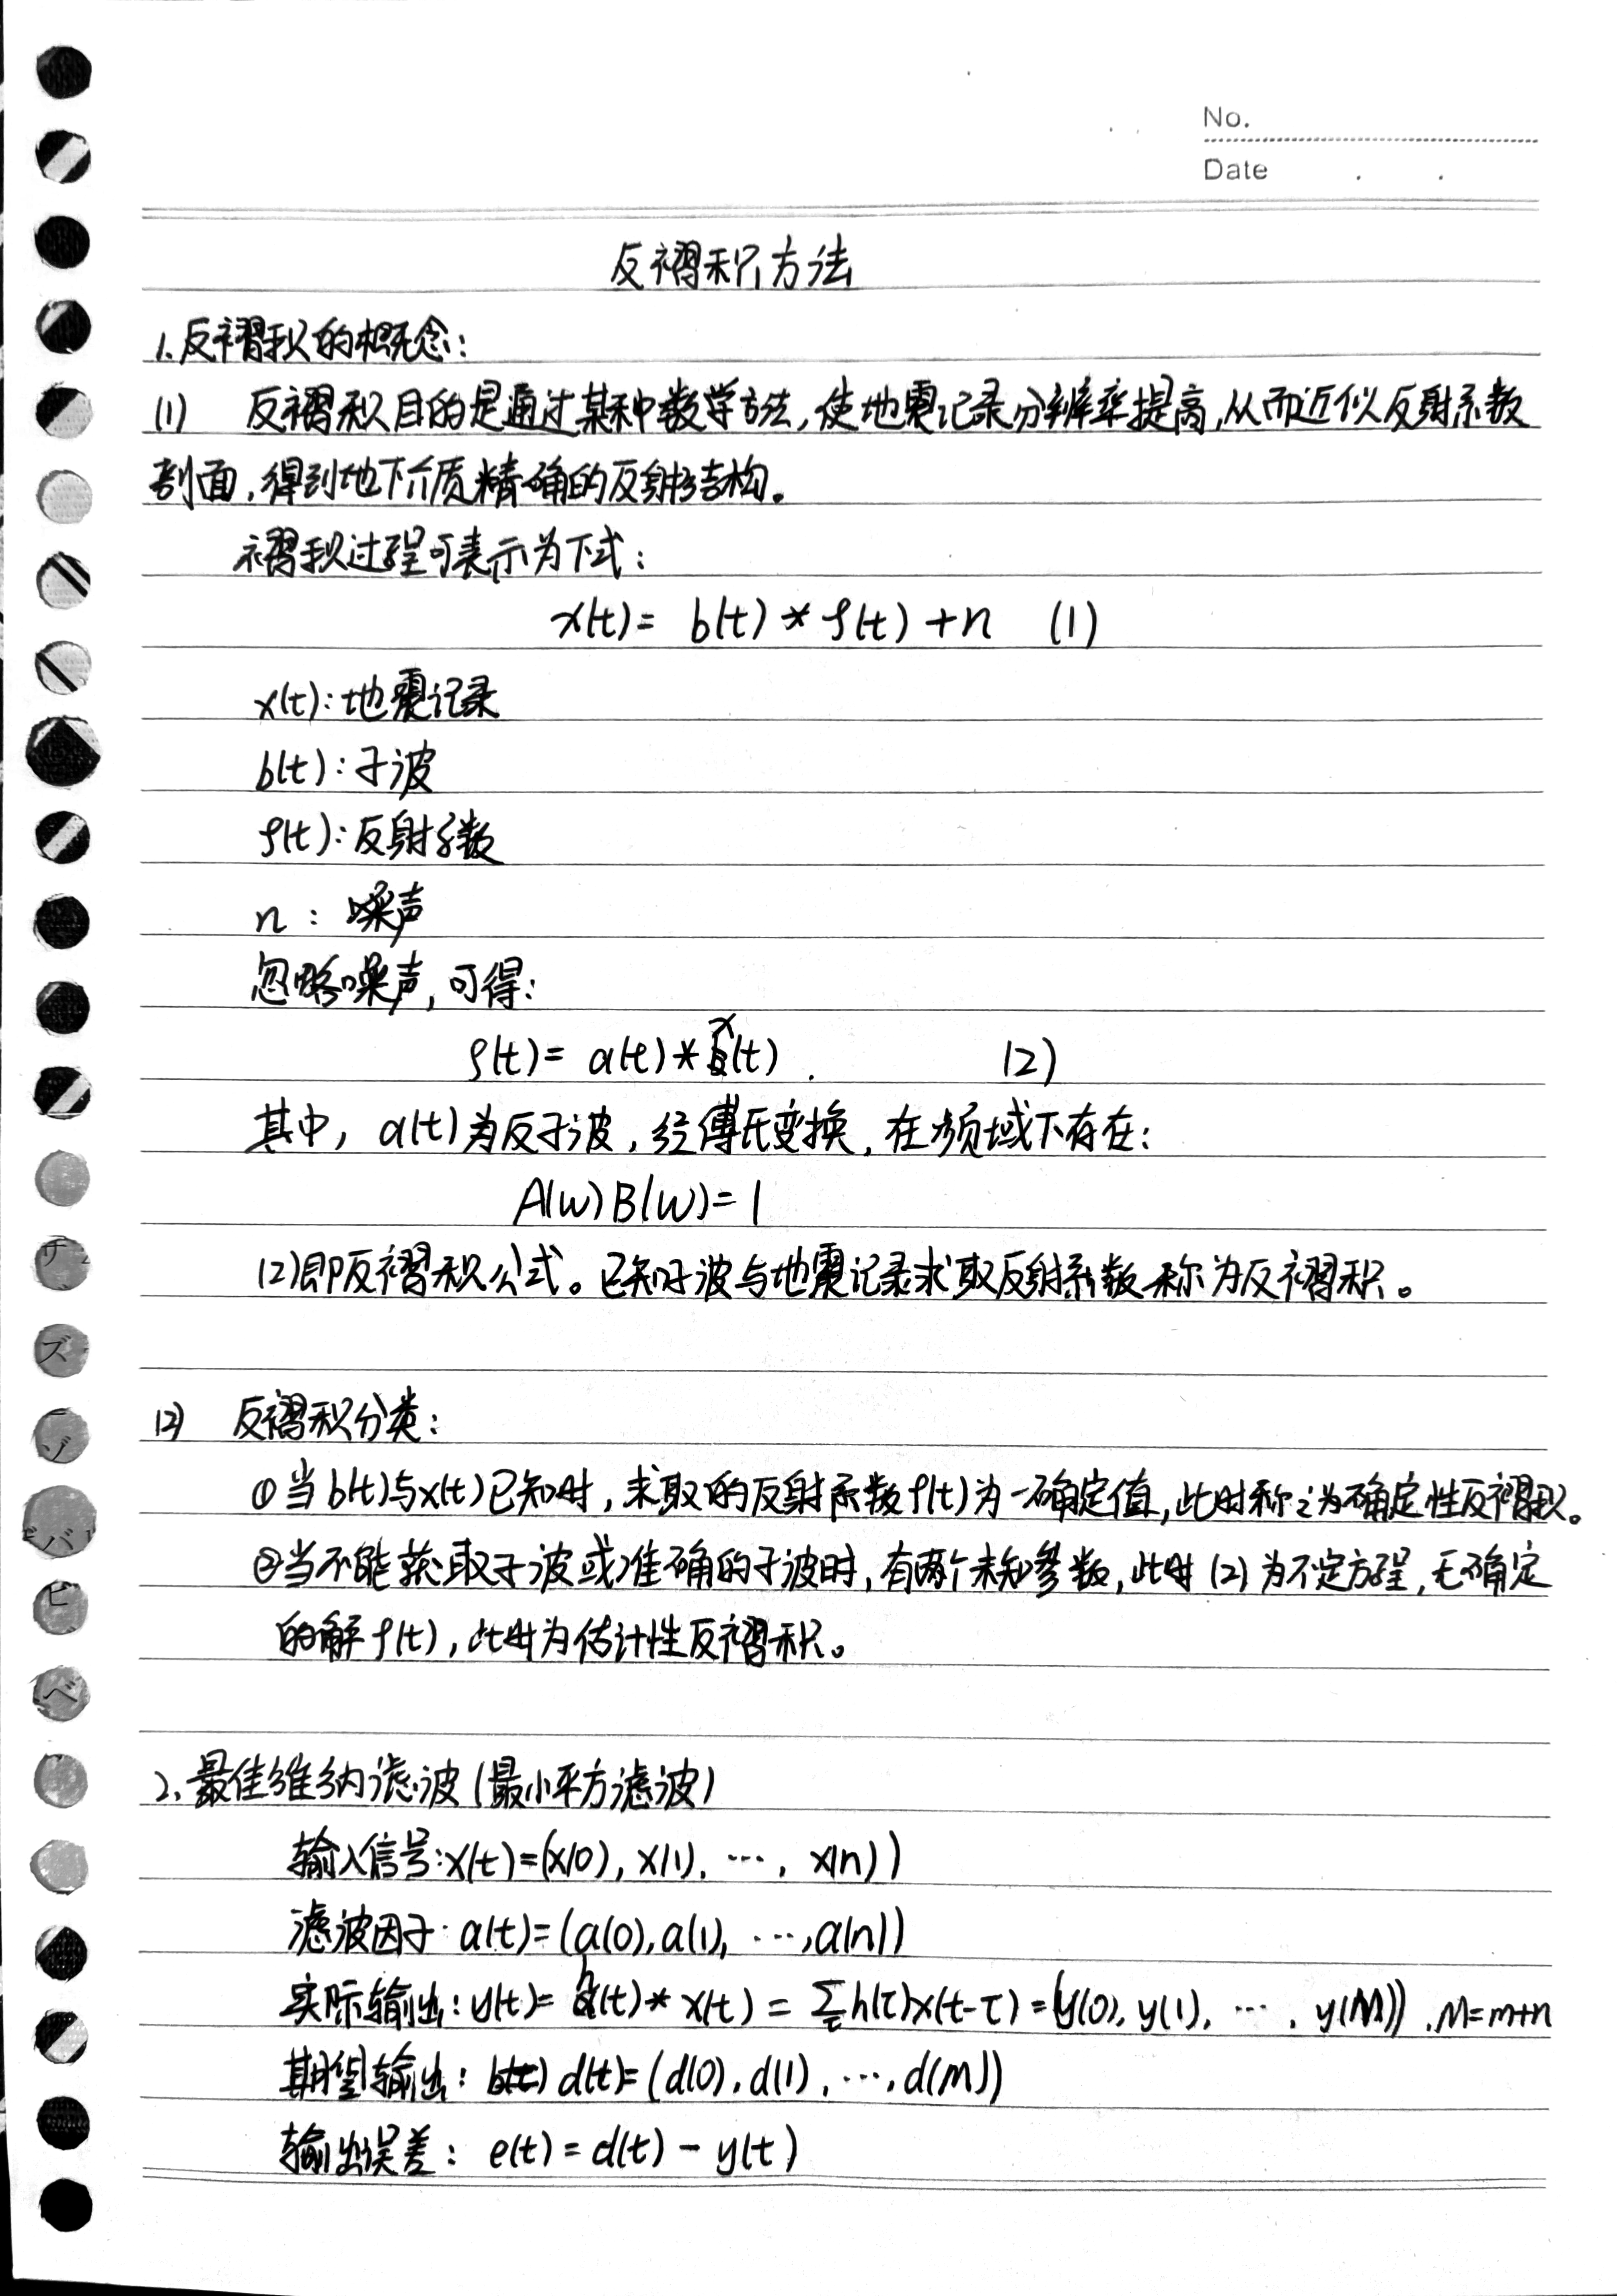 No.
Date . .
反褶积方法
1.反褶积的概念:
(1) 反褶积目的是通过某种数学方法,使地震记录分辨率提高,从而近似反射系数
剖面,得到地下介质精确的反射结构。
褶积过程可表示为下式:
x(t)= b(t)*ρ(t)+n (1)
x(t):地震记录
b(t):子波
ρ(t):反射系数
n : 噪声
忽略噪声,可得:
ρ(t)= a(t)*x(t). (2)
其中, a(t)为反子波,经傅氏变换,在频域下存在:
A(ω)B(ω)=1
(2)即反褶积公式。已知子波与地震记录求取反射系数称为反褶积。
(2) 反褶积分类:
①当b(t)与x(t)已知时,求取的反射系数ρ(t)为一确定值,此时称之为确定性反褶积。
②当不能获取子波或准确的子波时,有两个未知参数,此时(2)为不定方程,无确定
的解ρ(t),此时为估计性反褶积。
2、最佳维纳滤波(最小平方滤波)
输入信号:x(t)=(x(0), x(1), ⋯, x(n))
滤波因子: a(t)=(a(0),a(1), ⋯,a(n))
实际输出: y(t)= h(t)* x(t) = Σ_τ h(τ)x(t-τ) =(y(0), y(1), ⋯, y(M)) ,M=m+n
期望输出: b(t) d(t)=(d(0), d(1), ⋯, d(M))
输出误差: e(t)= d(t) - y(t)
サ
ズ
ゾ
バ
ビ
ベ